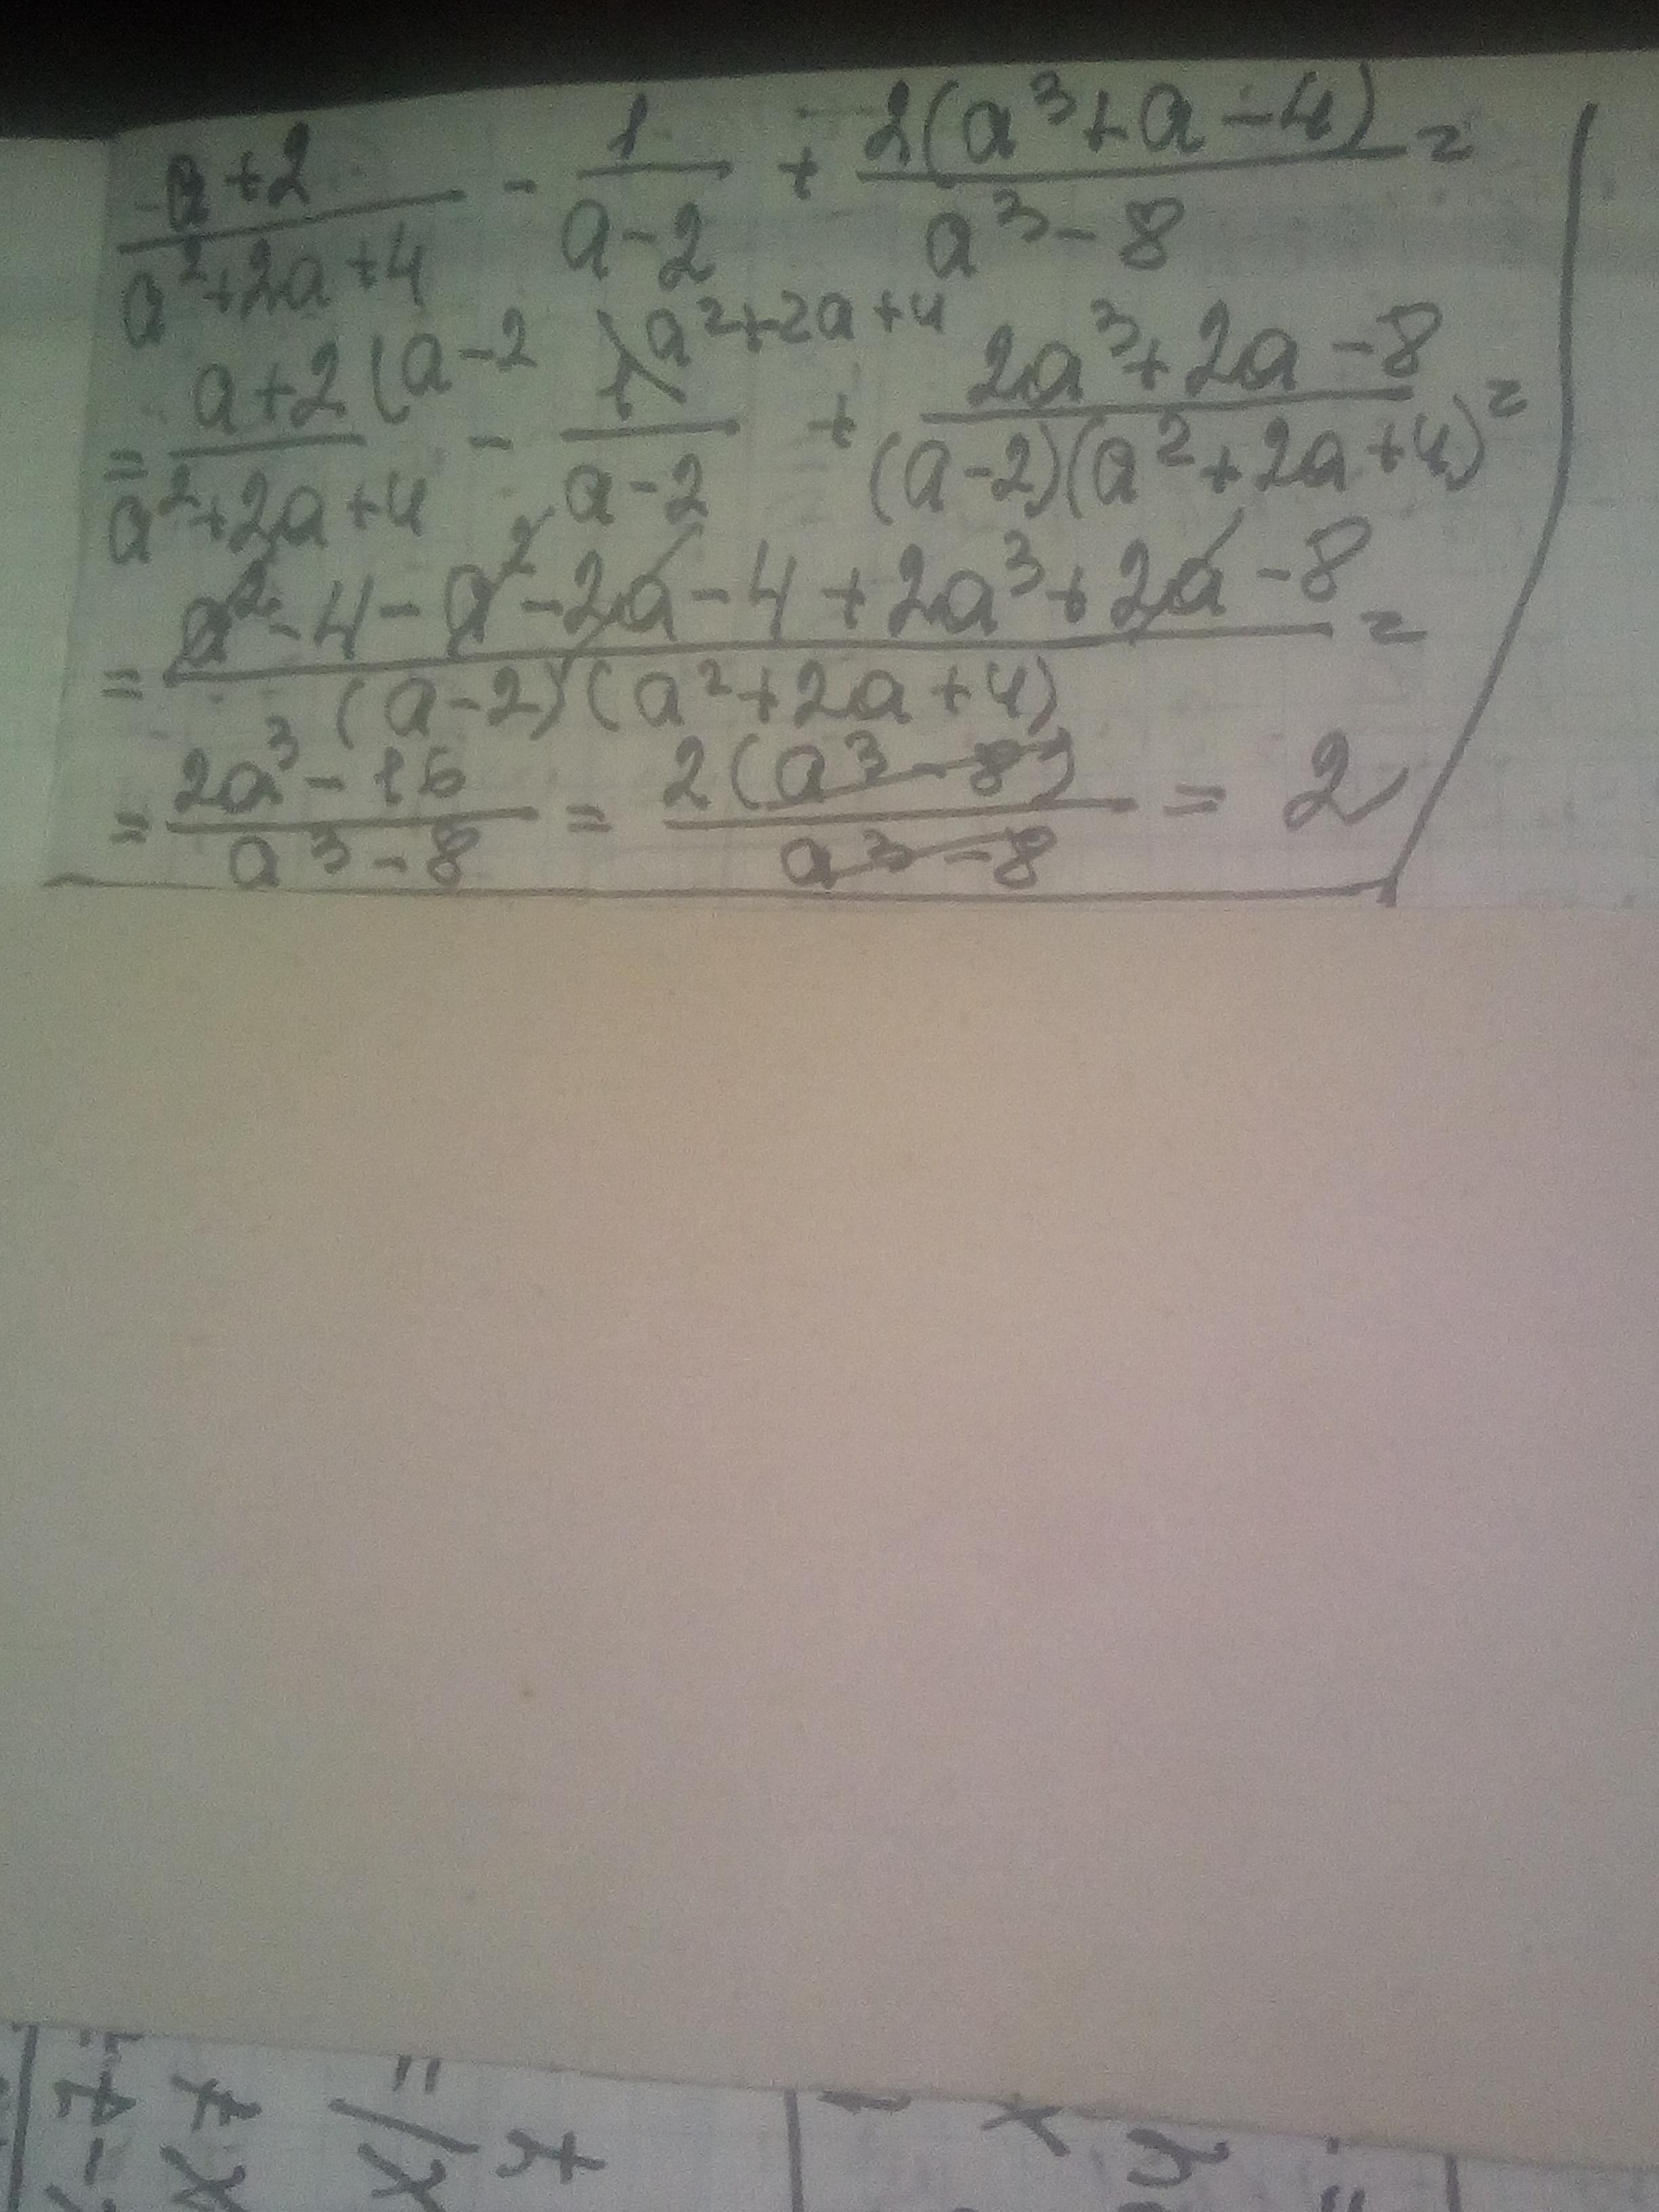 (a+2)/(a²+2a+4) - 1/(a-2) + 2(a³+a-4)/(a³-8) =
= a+2(a-2/(a²+2a+4) - 1\a²+2a+4/(a-2) + (2a³+2a-8)/((a-2)(a²+2a+4)) =
= (a²-4-a²-2a-4+2a³+2a-8)/((a-2)(a²+2a+4)) =
= (2a³-16)/(a³-8) = 2(a³-8)/(a³-8) = 2